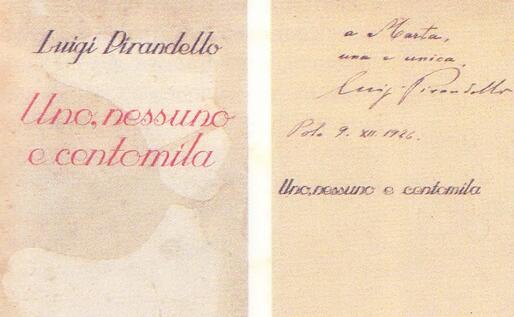 Luigi Pirandello
Uno, nessuno
e centomila
a Marta,
una e unica.
Luigi Pirandello
Pola 9. XII. 1926.
Uno, nessuno e centomila